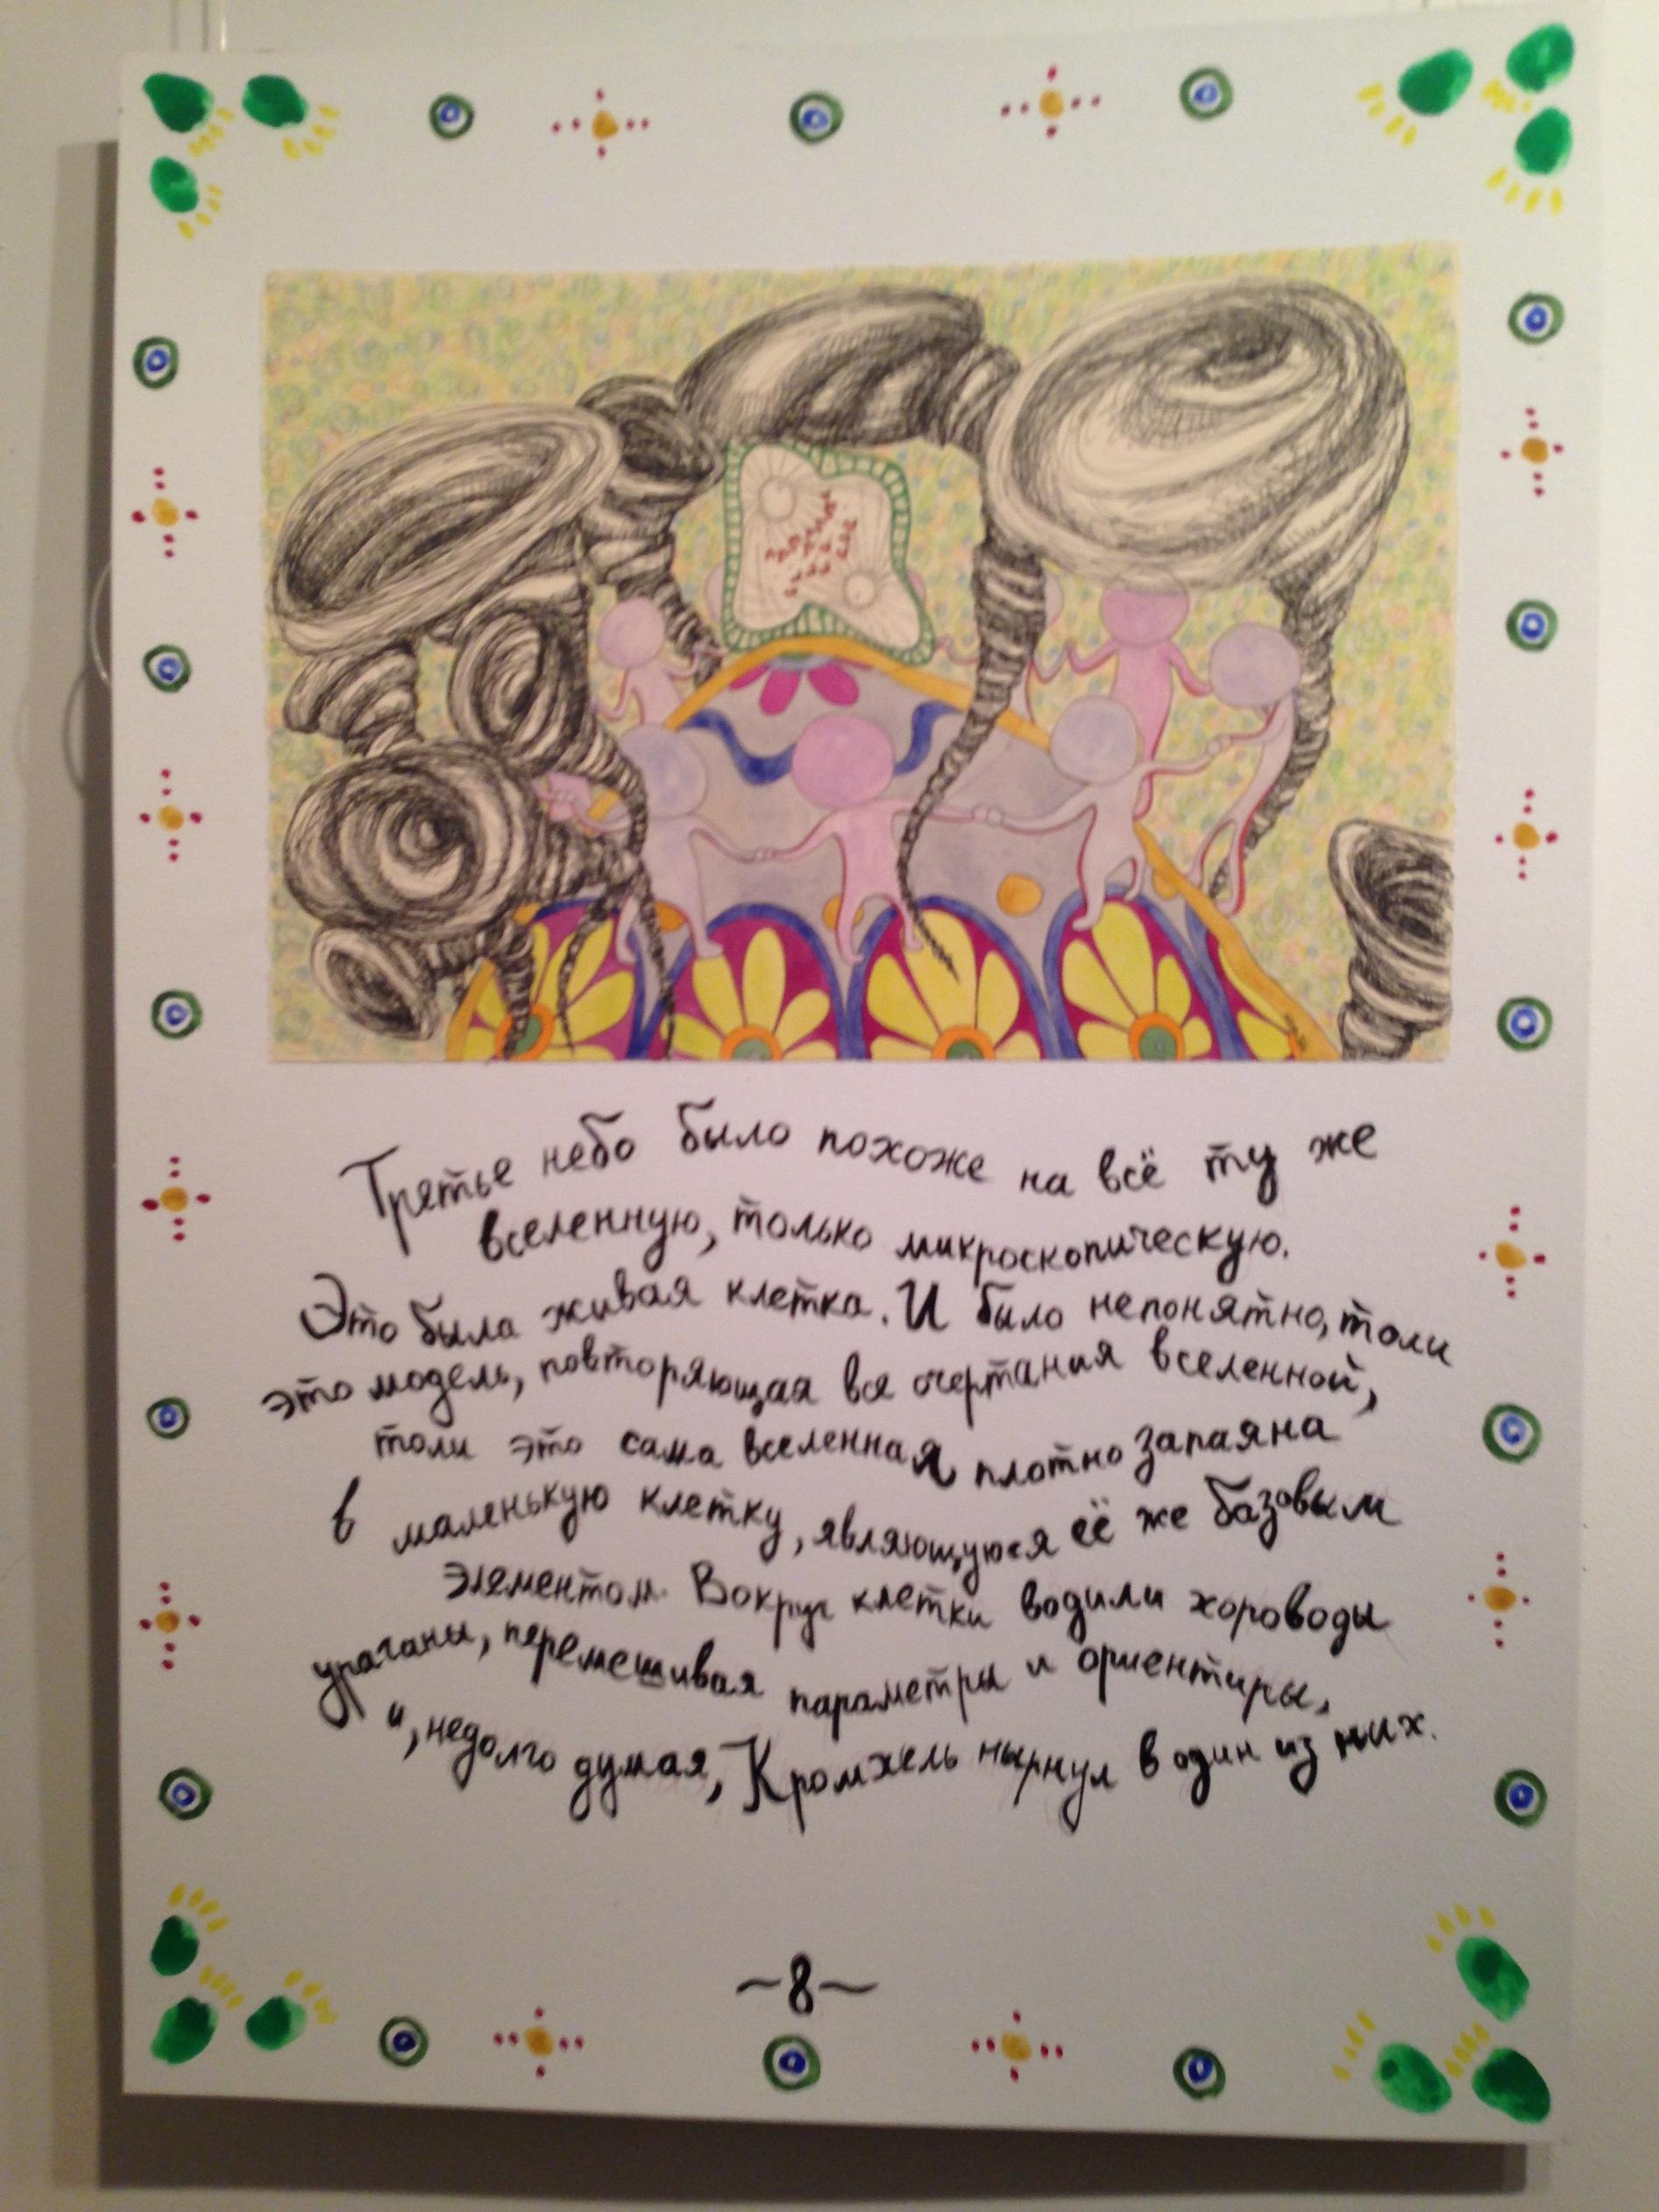 Третье небо было похоже на всё ту же
вселенную, только микроскопическую.
Это была живая клетка. И было непонятно, толи
это модель, повторяющая вся очертания вселенной,
толи это сама вселенная плотно запаяна
в маленькую клетку, являющуюся её же базовым
элементом. Вокруг клетки водили хороводы
ураганы, перемешивая параметры и ориентиры,
и, недолго думая, Кромхель нырнул в один из них.
~8~